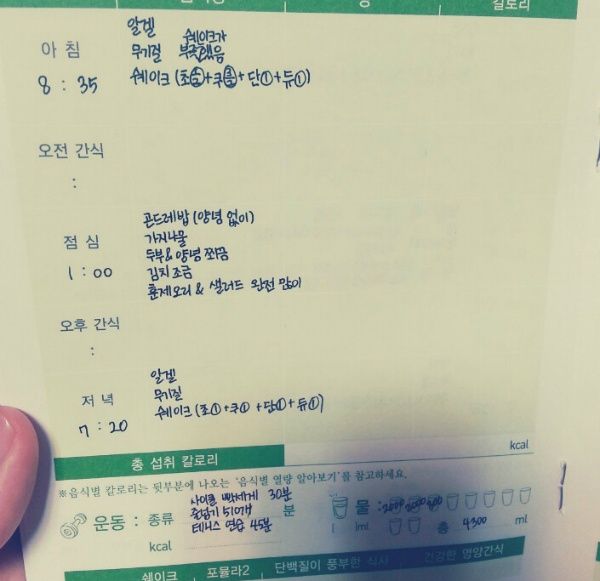 칼로리
알겔 쉐이크가
아 침 무기질 부족했음
8 : 35 쉐이크 (초 + 쿠 + 단① + 듀①)
오전 간식
:
곤드레밥 (양념 없이)
점 심 가지나물
두부&양념 쪼끔
1 : 00 김치 조금
훈제오리 & 샐러드 완전 많이
오후 간식
:
알겔
저 녁 무기질
쉐이크 (초① + 쿠① + 단① + 듀①)
7 : 20
총 섭취 칼로리 kcal
※음식별 칼로리는 뒷부분에 나오는 '음식별 열량 알아보기'를 참고하세요.
사이클 빡세게 30분
운동 : 종류 줄넘기 510개 분
테니스 연습 45분
kcal
물 :
l ml 총 4300 ml
쉐이크 포뮬라2 단백질이 풍부한 식사 건강한 영양간식